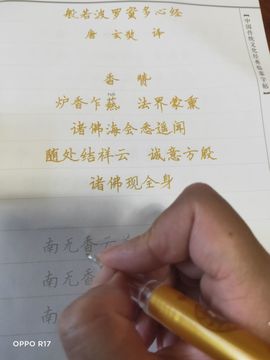 般若波罗蜜多心经
唐 玄奘 译
香 赞
炉香乍爇 法界蒙熏
诸佛海会悉遥闻
随处结祥云 诚意方殷
诸佛现全身
南无香云
南无香
南无
中国传统文化经典临摹字帖
OPPO R17